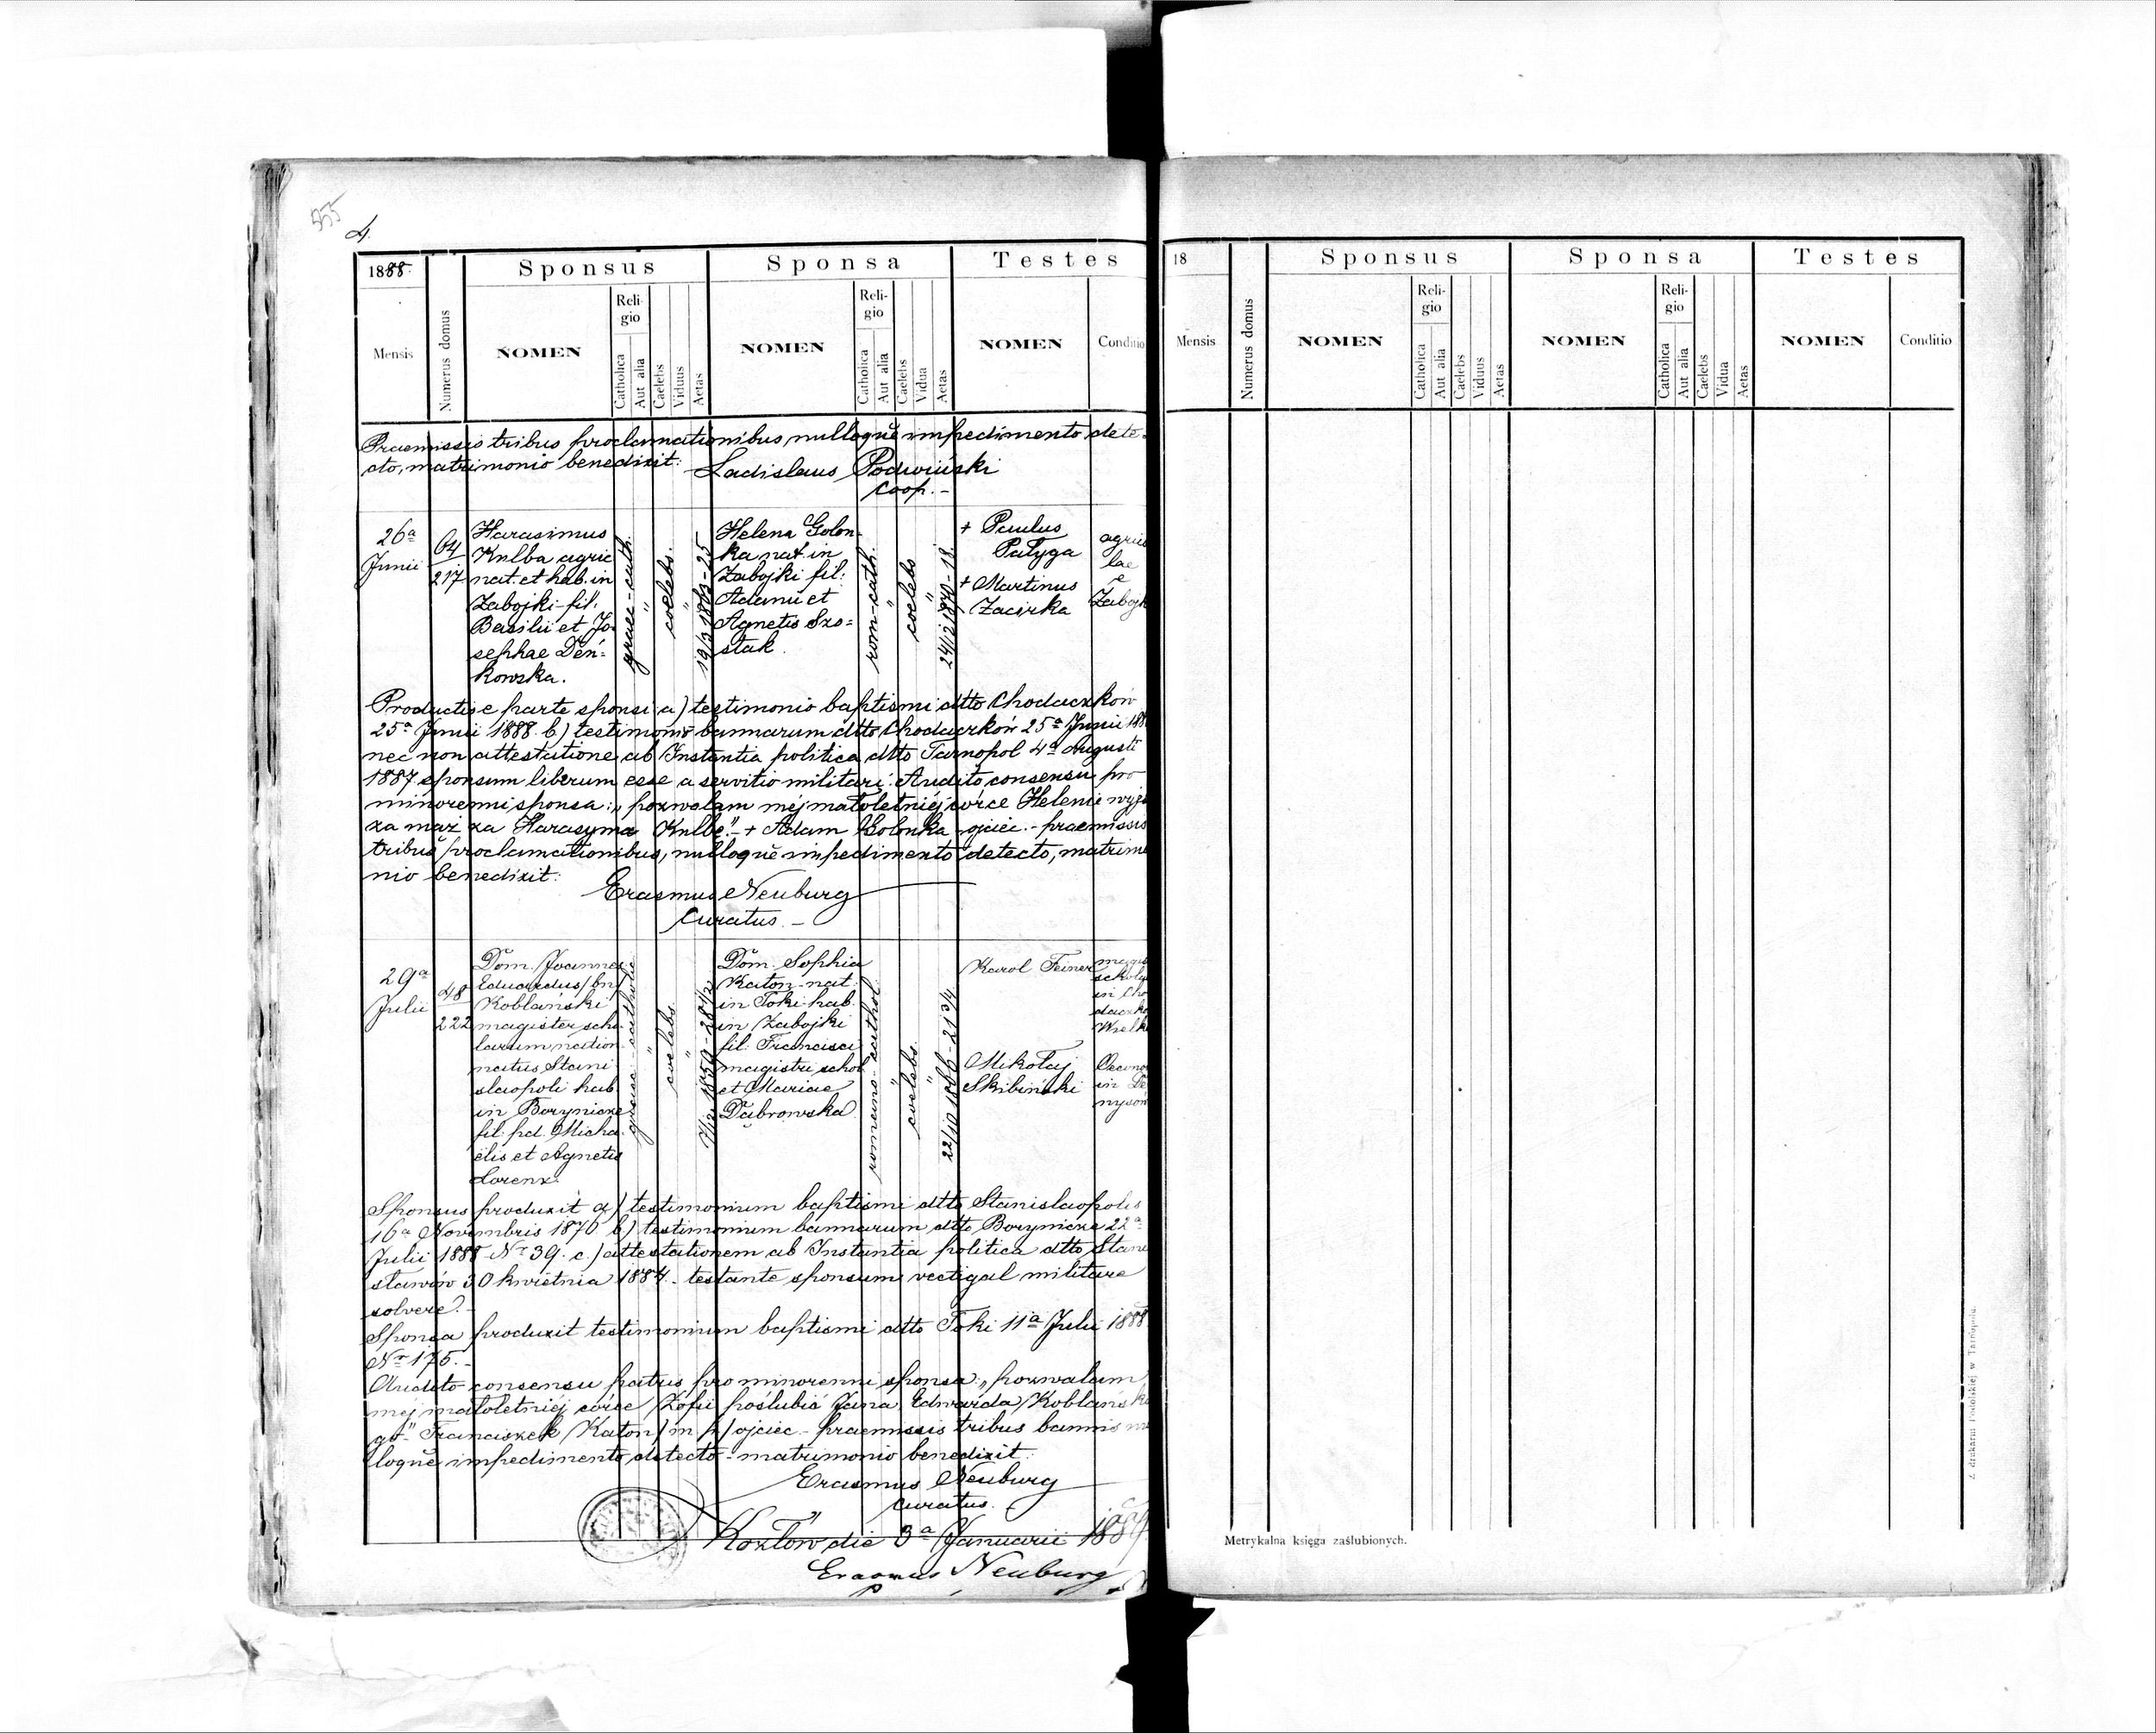 355
4.
1888.
Sponsus
Sponsa
Testes
Mensis
Numerus domus
NOMEN
Religio
Catholica
Aut alia
Caelebs
Viduus
Aetas
NOMEN
Religio
Catholica
Aut alia
Caelebs
Vidua
Aetas
NOMEN
Conditio
Praemissis tribus proclamationibus nulloque impedimento dete-
cto, matrimonio benedixit:
Ladislaus Podwiński
coop. -
26a
Junii
64
217
Harasimus
Kulba agric
nat. et hab. in
Zabojki - fil:
Basilii et Jo-
sephae Deń=
kowska.
graec-cath.
coelebs.
19/3 1863-25
Helena Golon-
ka nat in
Zabojki fil:
Adami et
Agnetis Szo=
stak.
rom-cath.
coelebs
24/2 1870-18
+ Paulus
Pałyga
+ Martinus
Zacirka
agrico
lae
e
Zabojk
Productis e parte sponsi a) testimonio baptismi dtto Chodaczków
25a Junii 1888. b) testimonio bannarum dtto Chodaczków 25a Junii 188
nec non attestatione ab Instantia politica dtto Tarnopol 4a Augusti
1887 sponsum liberum esse a servitio militari. Audito consensu pro
minorenni sponsa: „pozwalam méj małoletniéj córce Helenie wyjś
za mąż za Harasyma Kulbę" - + Adam Golonka ojciec. - praemissis
tribus proclamationibus, nulloque impedimento detecto, matrimo
nio benedixit:
Erasmus Neuburg
curatus. -
29a
Julii
48
222
Dom. Joannes
Eduardus /bn/
Koblański
magister scho
larum nation
natus Stani
slaopoli hab
in Borynicze
fil. pd. Micha
elis et Agnetis
Lorenz.
graec-catholic
coelebs.
1859-28 1/2
Dom. Sophia
Katon - nat.
in Toki hab
in Zabojki
fil: Francisci
magistri schol
et Mariae
Dąbrowska
romano-cathol.
coelebs.
22/10 1866-21 3/4
Karol Feiner
magis
schola
in Cho
daczko
Wielk
Mikołaj
Skibiński
Oecono
in De
nysow
Sponsus produxit a) testimonium baptismi dtto Stanislaopolis
16a Novembris 1870 b) testimonium bannarum dtto Borynicze 22a
Julii 1888 Nr 39. c) attestationem ab Instantia politica dtto Stani
sławów 30 kwietnia 1887. testante sponsum vectigal militare
solvere. -
Sponsa produxit testimonium baptismi dtto Toki 11a Julii 1888
Nr 175. -
Audito consensu patris pro minorenni sponsa: „pozwalam
mej małoletniéj córce Zofii poślubić Jana Edwarda Koblańsk
go" Franciszek Katon /m p/ ojciec - praemissis tribus bannis nu
loque impedimento detecto - matrimonio benedixit:
Erasmus Neuburg
curatus.
Kozłów die 3a Januarii 1889.
Erasmus Neuburg
18
Sponsus
Sponsa
Testes
Mensis
Numerus domus
NOMEN
Religio
Catholica
Aut alia
Caelebs
Viduus
Aetas
NOMEN
Religio
Catholica
Aut alia
Caelebs
Vidua
Aetas
NOMEN
Conditio
Z drukarni Podolskiej w Tarnopolu.
Metrykalna księga zaślubionych.